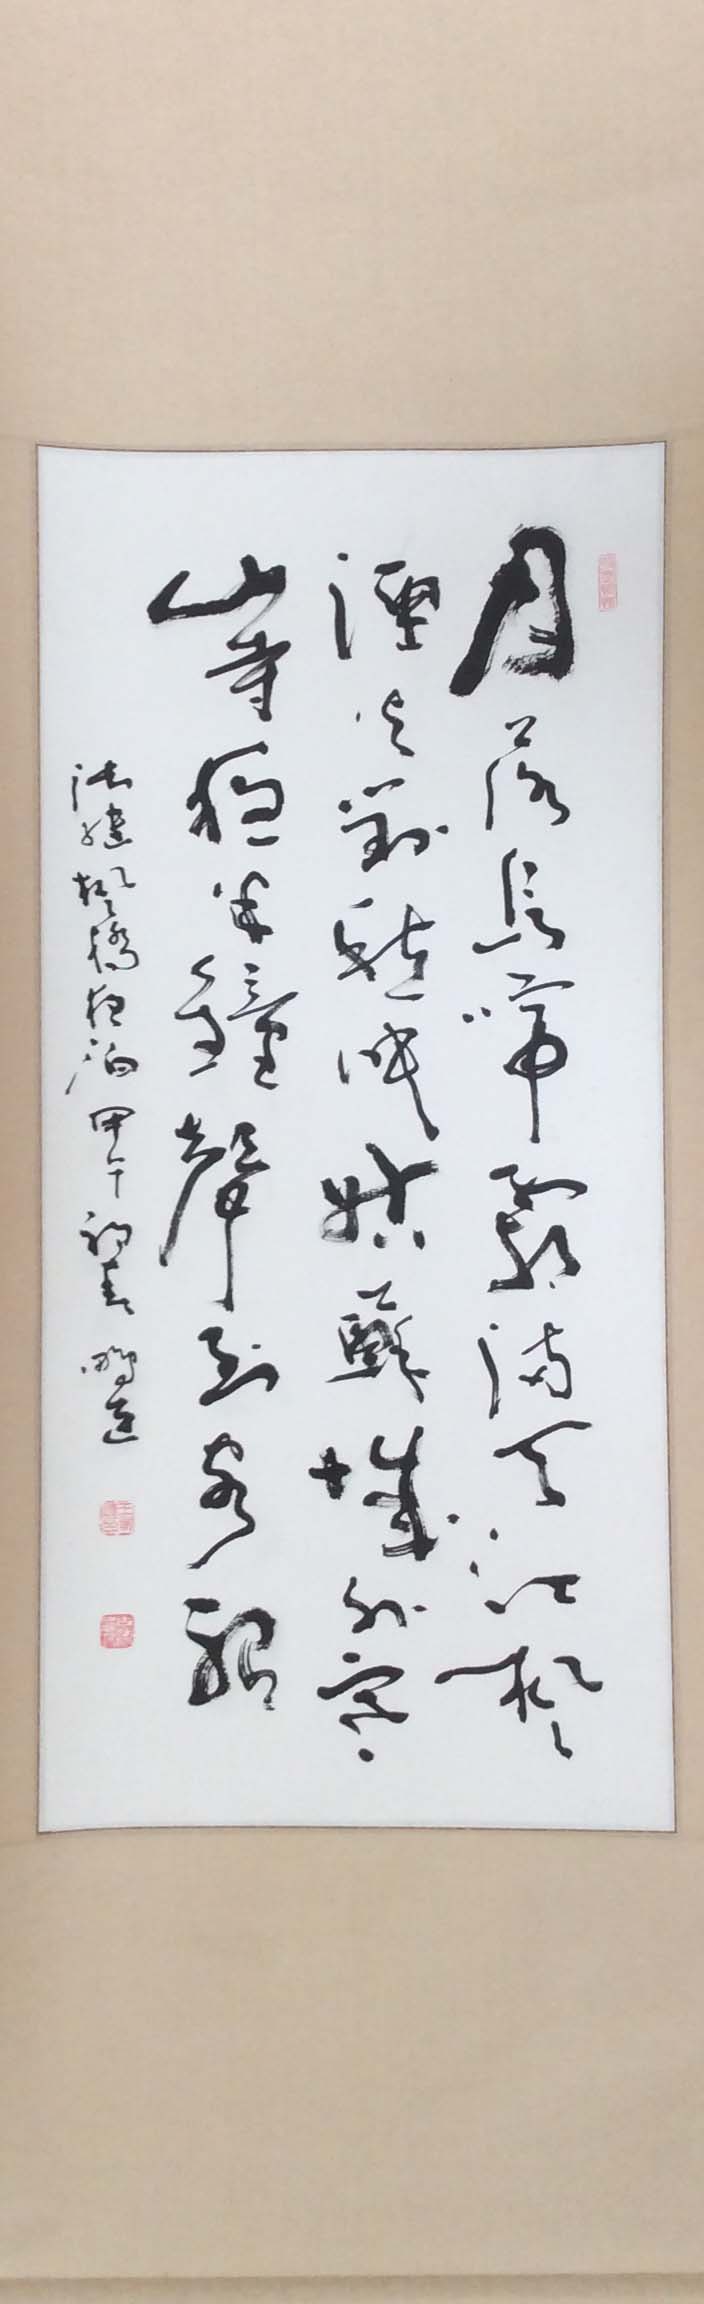 月落烏啼霜滿天江楓
漁火對愁眠姑蘇城外寒
山寺夜半鐘聲到客船
張繼楓橋夜泊 甲午初春